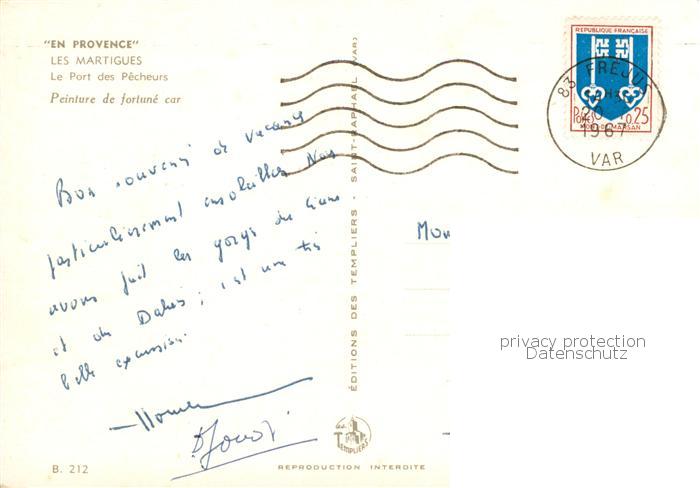 "EN PROVENCE"
LES MARTIGUES
Le Port des Pêcheurs
Peinture de fortuné car
Bon souvenir de vacances
particulièrement ensoleillées Nous
avons fait les gorges du
et du ; c'est une très
belle excursion
ÉDITIONS DES TEMPLIERS - SAINT-RAPHAEL (VAR)
RÉPUBLIQUE FRANÇAISE
Postes 0,25
MONT-DE-MARSAN
83 FRÉJUS
20
1967
VAR
privacy protection
Datenschutz
TEMPLIERS
B. 212
REPRODUCTION INTERDITE